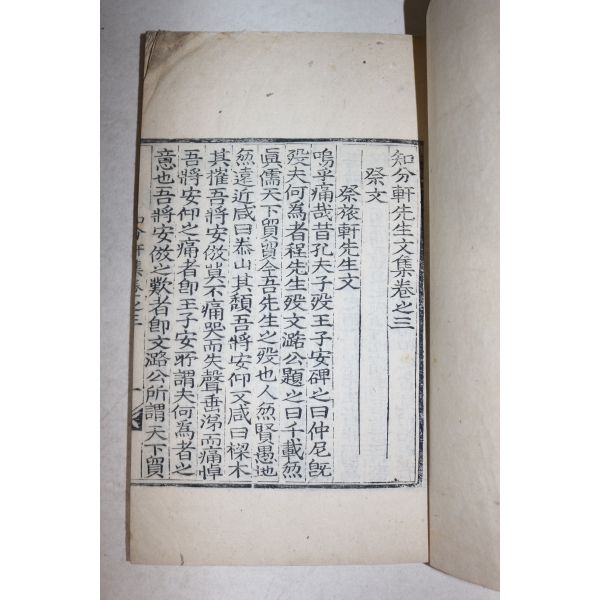 知分軒先生文集卷之三
祭文
祭旅軒先生文
嗚乎痛哉昔孔夫子歿王子安碑之曰仲尼旣
歿夫何爲者程先生歿文潞公題之曰千載無
眞儒天下貿貿今吾先生之歿也人無賢愚地
無遠近咸曰泰山其頹吾將安仰又咸曰樑木
其摧吾將安倣莫不痛哭而失聲垂涕而痛悼
吾將安仰之痛者卽王子安所謂夫何爲者之
意也吾將安倣之歎者卽文潞公所謂天下貿
知分軒集卷之三
一